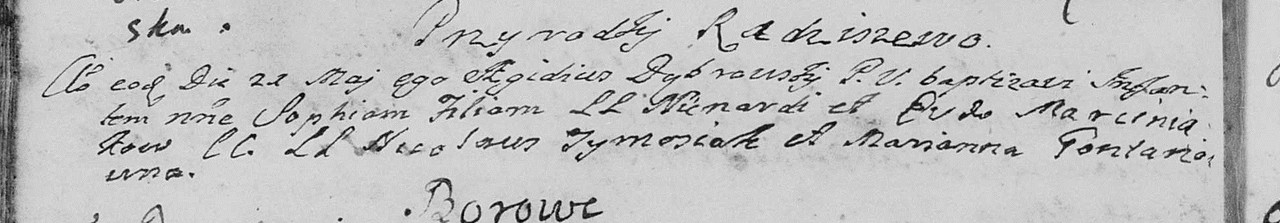 ska.
Przyrodzij Radziszewo.
Ao eod Die 22 Maj ego Ægidius Dąbrowskij P. V. baptizavi Infan-
tem nne Sophiam Filiam LL Nienardi et Evdo Marcinia
kow CC. LL Nicolaus Tymosiak et Marianna
una.
Borowe